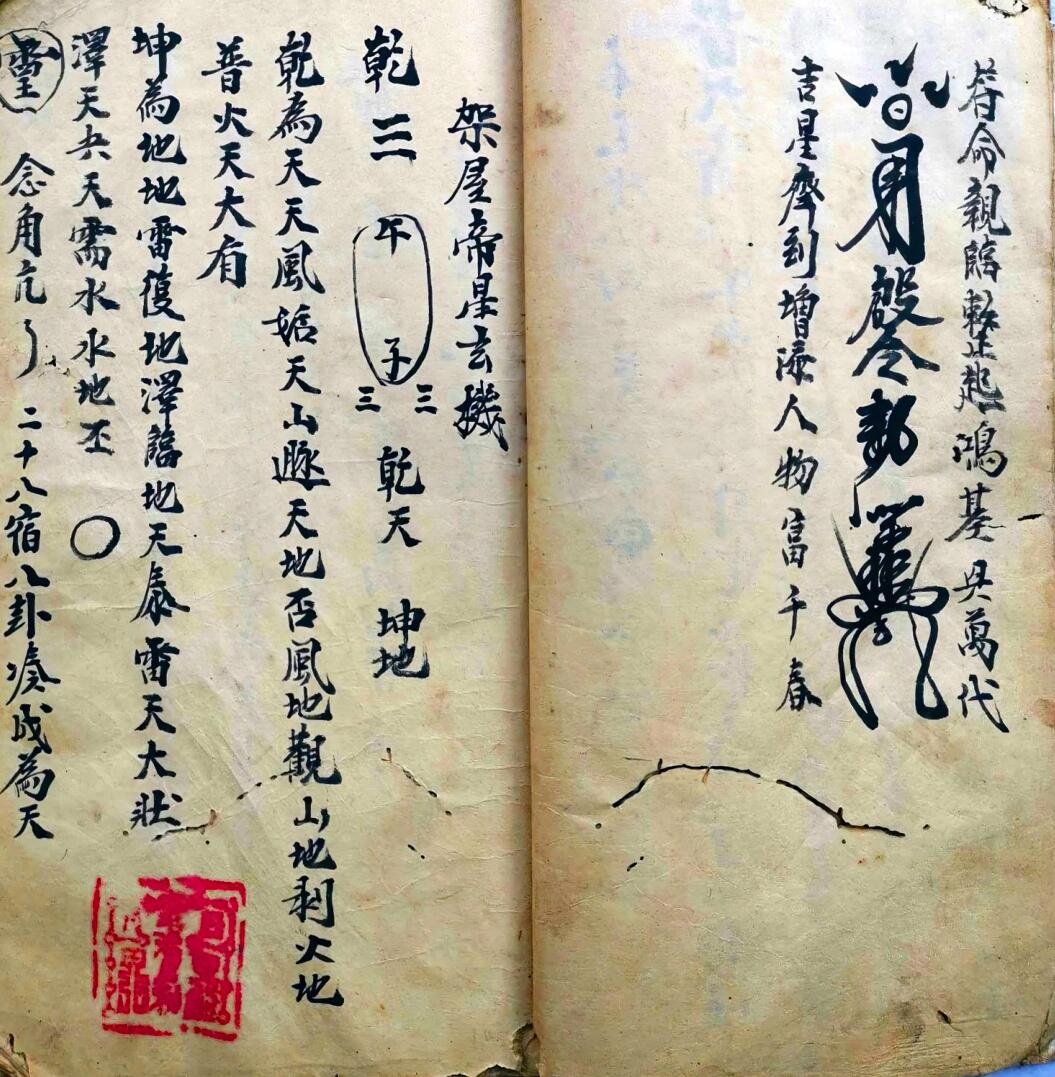 荐命親臨敕筆起鴻基興萬代
殷令勅
吉星齊到增添人物富千春
架屋帝星玄機
乾三 午子 三三 乾天 坤地
乾為天天風姤天山遯天地否風地觀山地剥火地
普火天大有
坤為地地雷復地澤臨地天泰雷天大壯
澤天夬天需水水地丕 〇
念角亢 二十八宿八卦凑成為天